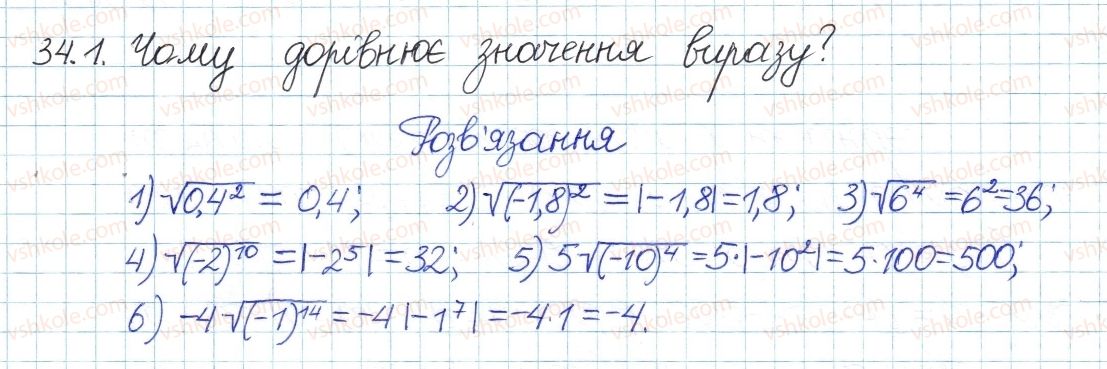 34.1. Чому дорівнює значення виразу?
Розв'язання
1) √0,4² = 0,4; 2) √(-1,8)² = |-1,8| = 1,8; 3) √6⁴ = 6² = 36;
4) √(-2)¹⁰ = |-2⁵| = 32; 5) 5√(-10)⁴ = 5·|-10²| = 5·100 = 500;
6) -4√(-1)¹⁴ = -4|-1⁷| = -4·1 = -4.